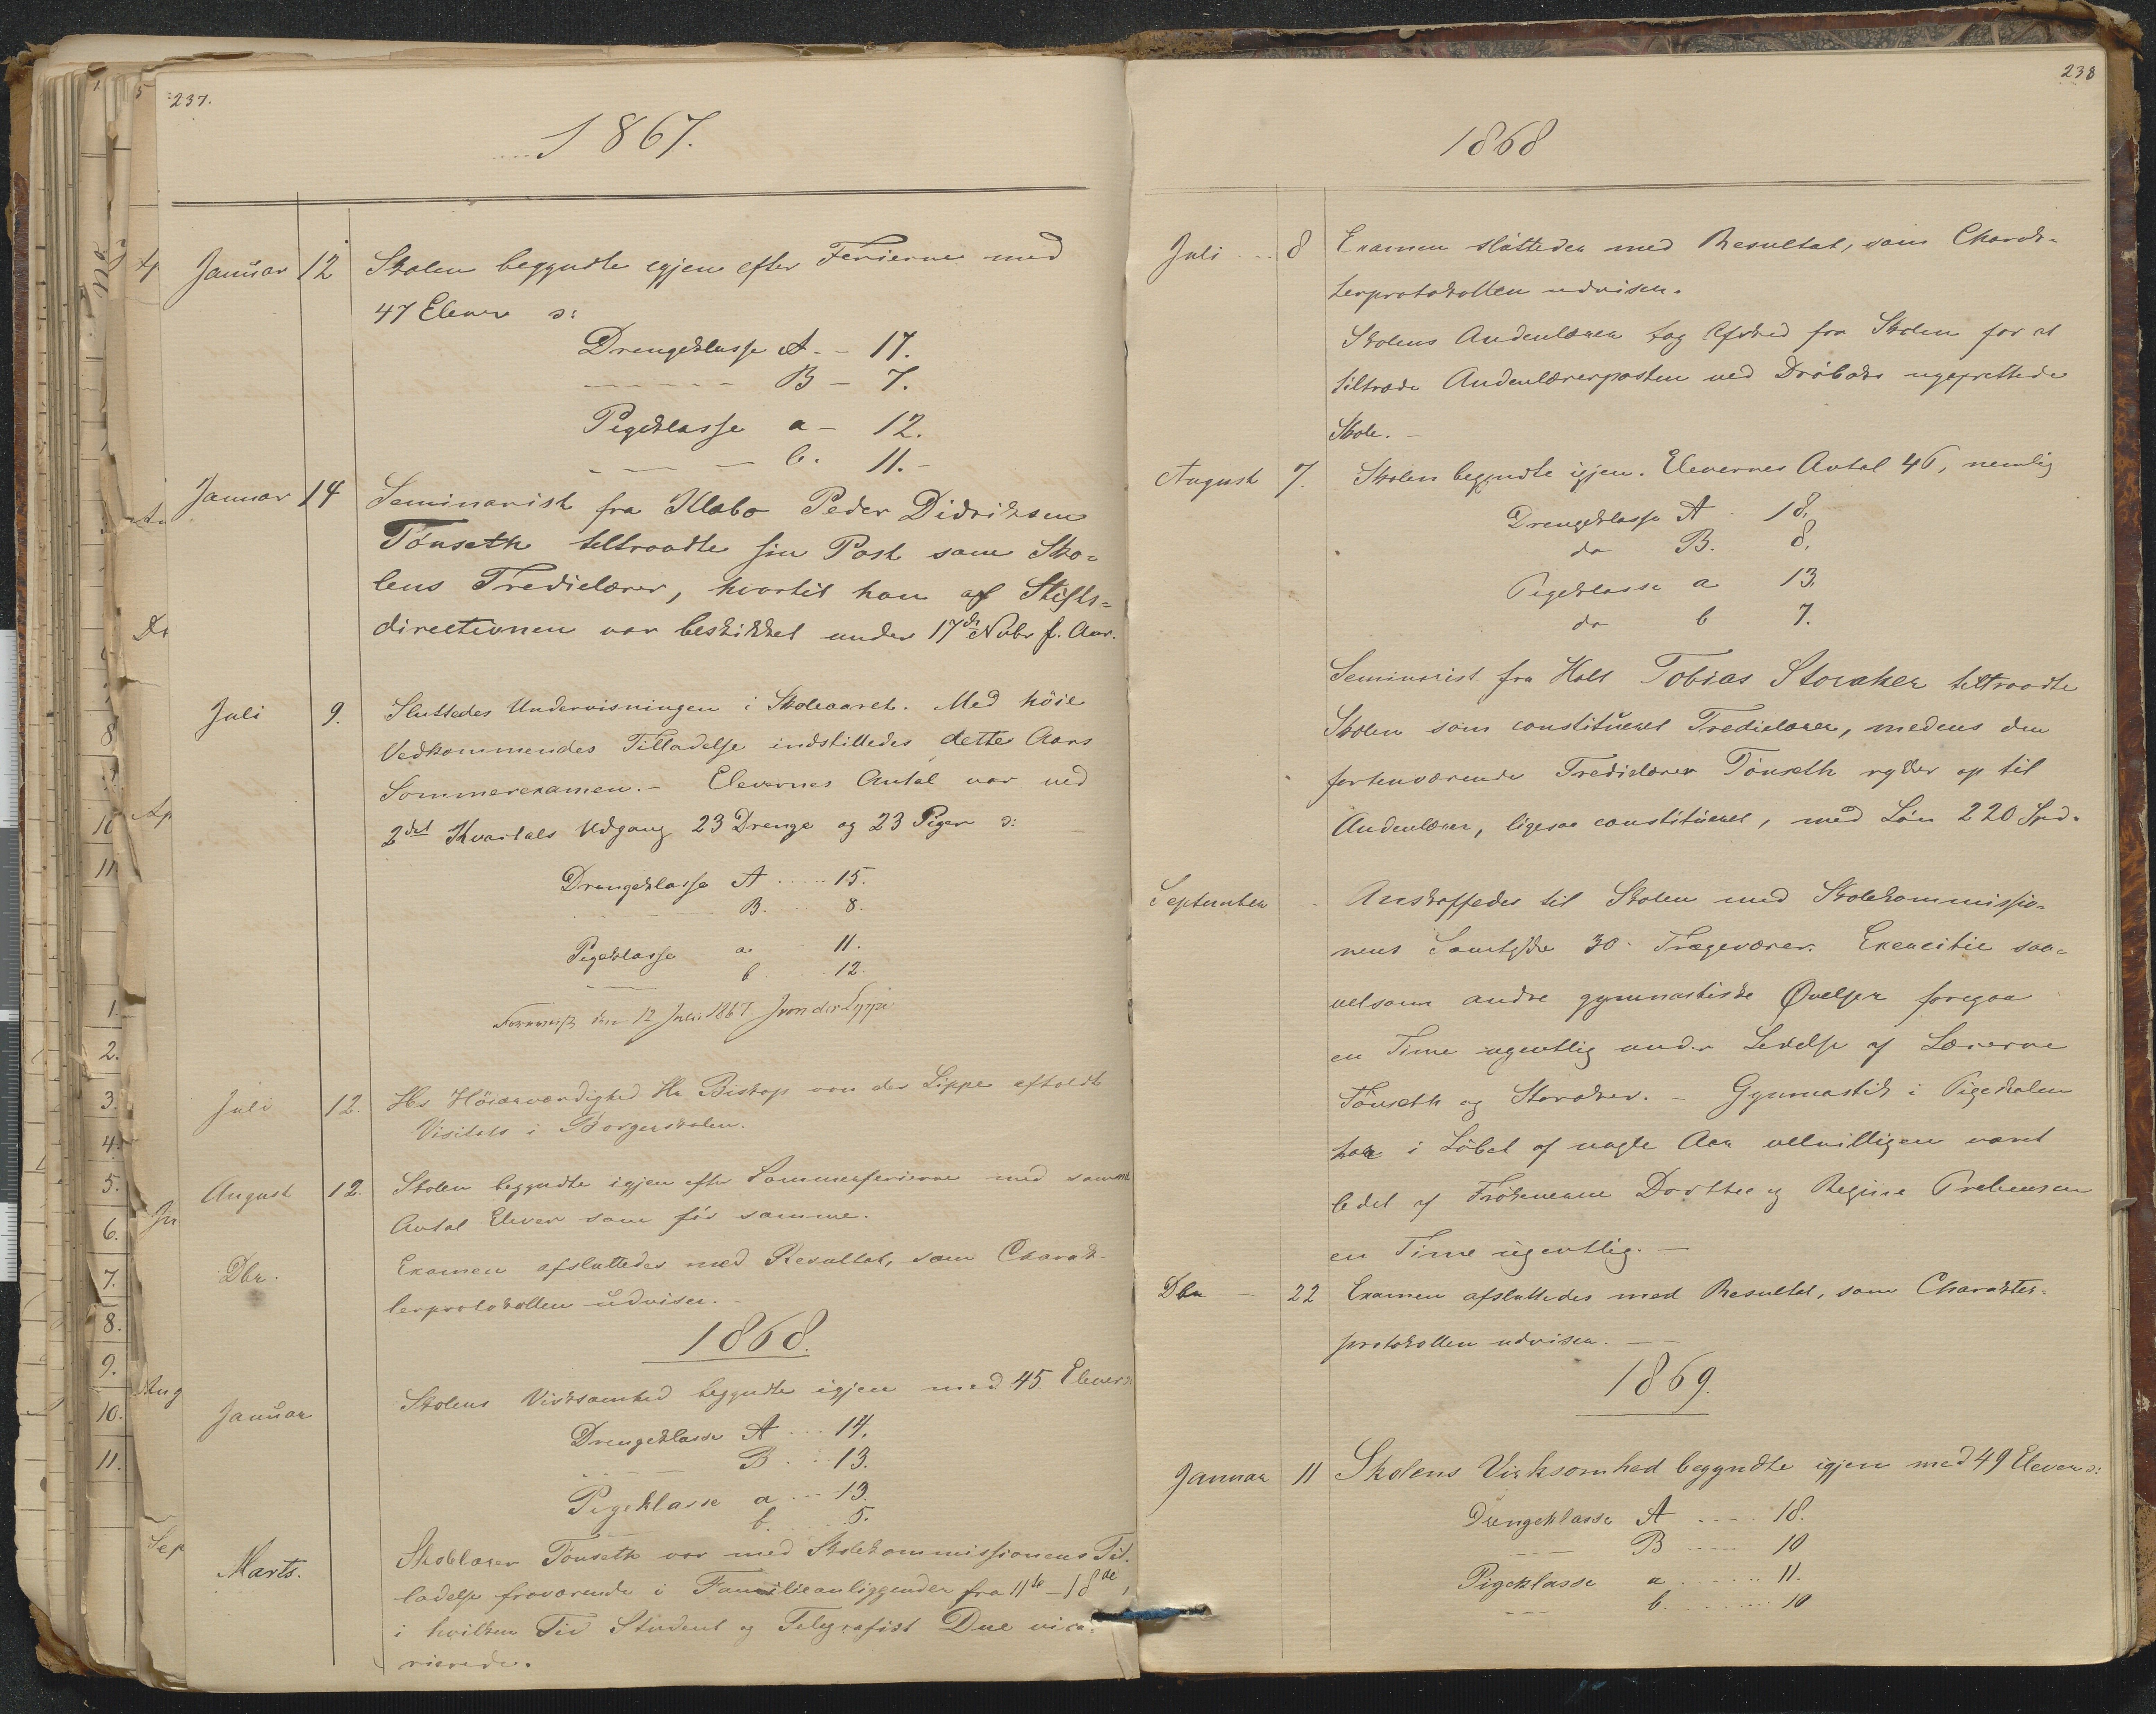 237.
1867.
Januar 12 Skolen begyndte igjen efter Ferierne med
47 Elever ɔ:
Drengeklasse A - - 17.
B - 7.
Pigeklasse a - 12.
b. 11. -
Januar 14 Seminarist fra Klæbo Peder Didriksen
Tönseth tiltraadte sin Post som Sko=
lens Tredielærer, hvortil han af Stifts=
directionen var beskikket under 17de Novbr f. Aar.
Juli 9. Sluttedes Undervisningen i Skoleaaret. Med höie
Vedkommendes Tilladelse indstilledes dette Aars
Sommerexamen. - Elevernes Antal var ved
2det Kvartals Udgang 23 Drenge og 23 Piger ɔ:
Drengeklasse A ..... 15.
B. 8.
Pigeklasse a 11.
b. 12.
den 12 Juli 1867 J von der Lippe
Juli 12. Hs Höiærværdighed Hr Biskop von der Lippe afholdt
Visitats i Borgerskolen.
August 12. Skolen begyndte igjen efter Sommerferierne med samme
Antal Elever som för samme.
Dbr. Examen afsluttedes med Resultat, som Charak-
terprotokollen udviser. -
1868.
Januar Skolens Virksomhed begyndte igjen med 45 Elever ɔ:
Drengeklasse A ... 14.
B ... 13.
Pigeklasse a ... 13.
b. 5.
Marts. Skolelærer Tönseth var med Skolekommissionens Til=
ladelse fraværende i Familieanliggender fra 11te - 18de,
i hvilken Tid Student og Telegrafist Due vica=
rierede.
238
1868
Juli ... 8 Examen sluttedes med Resultat, som Charak-
terprotokollen udviser.
Skolens Andenlærer tog Afsked fra Skolen for at
tiltræde Andenlærerposten ved Dröbaks nyoprettede
Skole. -
August 7. Skolen begyndte igjen. Elevernes Antal 46, nemlig
Drengeklasse A 18.
do B. 8.
Pigeklasse a 13.
do b 7.
Seminarist fra Holt Tobias Storaker tiltraadte
Skolen som constitueret Tredielærer, medens den
forhenværende Tredielærer Tönseth rykker op til
Andenlærer, ligesaa constitueret, med Lön 220 Spd.
September Anskaffedes til Skolen med Skolekommissio-
nens Samtykke 30 Trægeværer. Exercitie saa=
velsom andre gymnastiske Øvelser foregaa
en Time ugentlig under Ledelse af Lærerne
Tönseth og Storaker. - Gymnastik i Pigeskolen
har i Löbet af nogle Aar velvilligen været
ledet af Frökenerne Dorthea og Regine Prebensen
en Time ugentlig. -
Dbr - 22 Examen afsluttedes med Resultat, som Charakter-
protokollen udviser. -
1869.
Januar 11 Skolens Virksomhed begyndte igjen med 49 Elever ɔ:
Drengeklasse A .... 18.
B ..... 10
Pigeklasse a ...... 11.
b. ....... 10